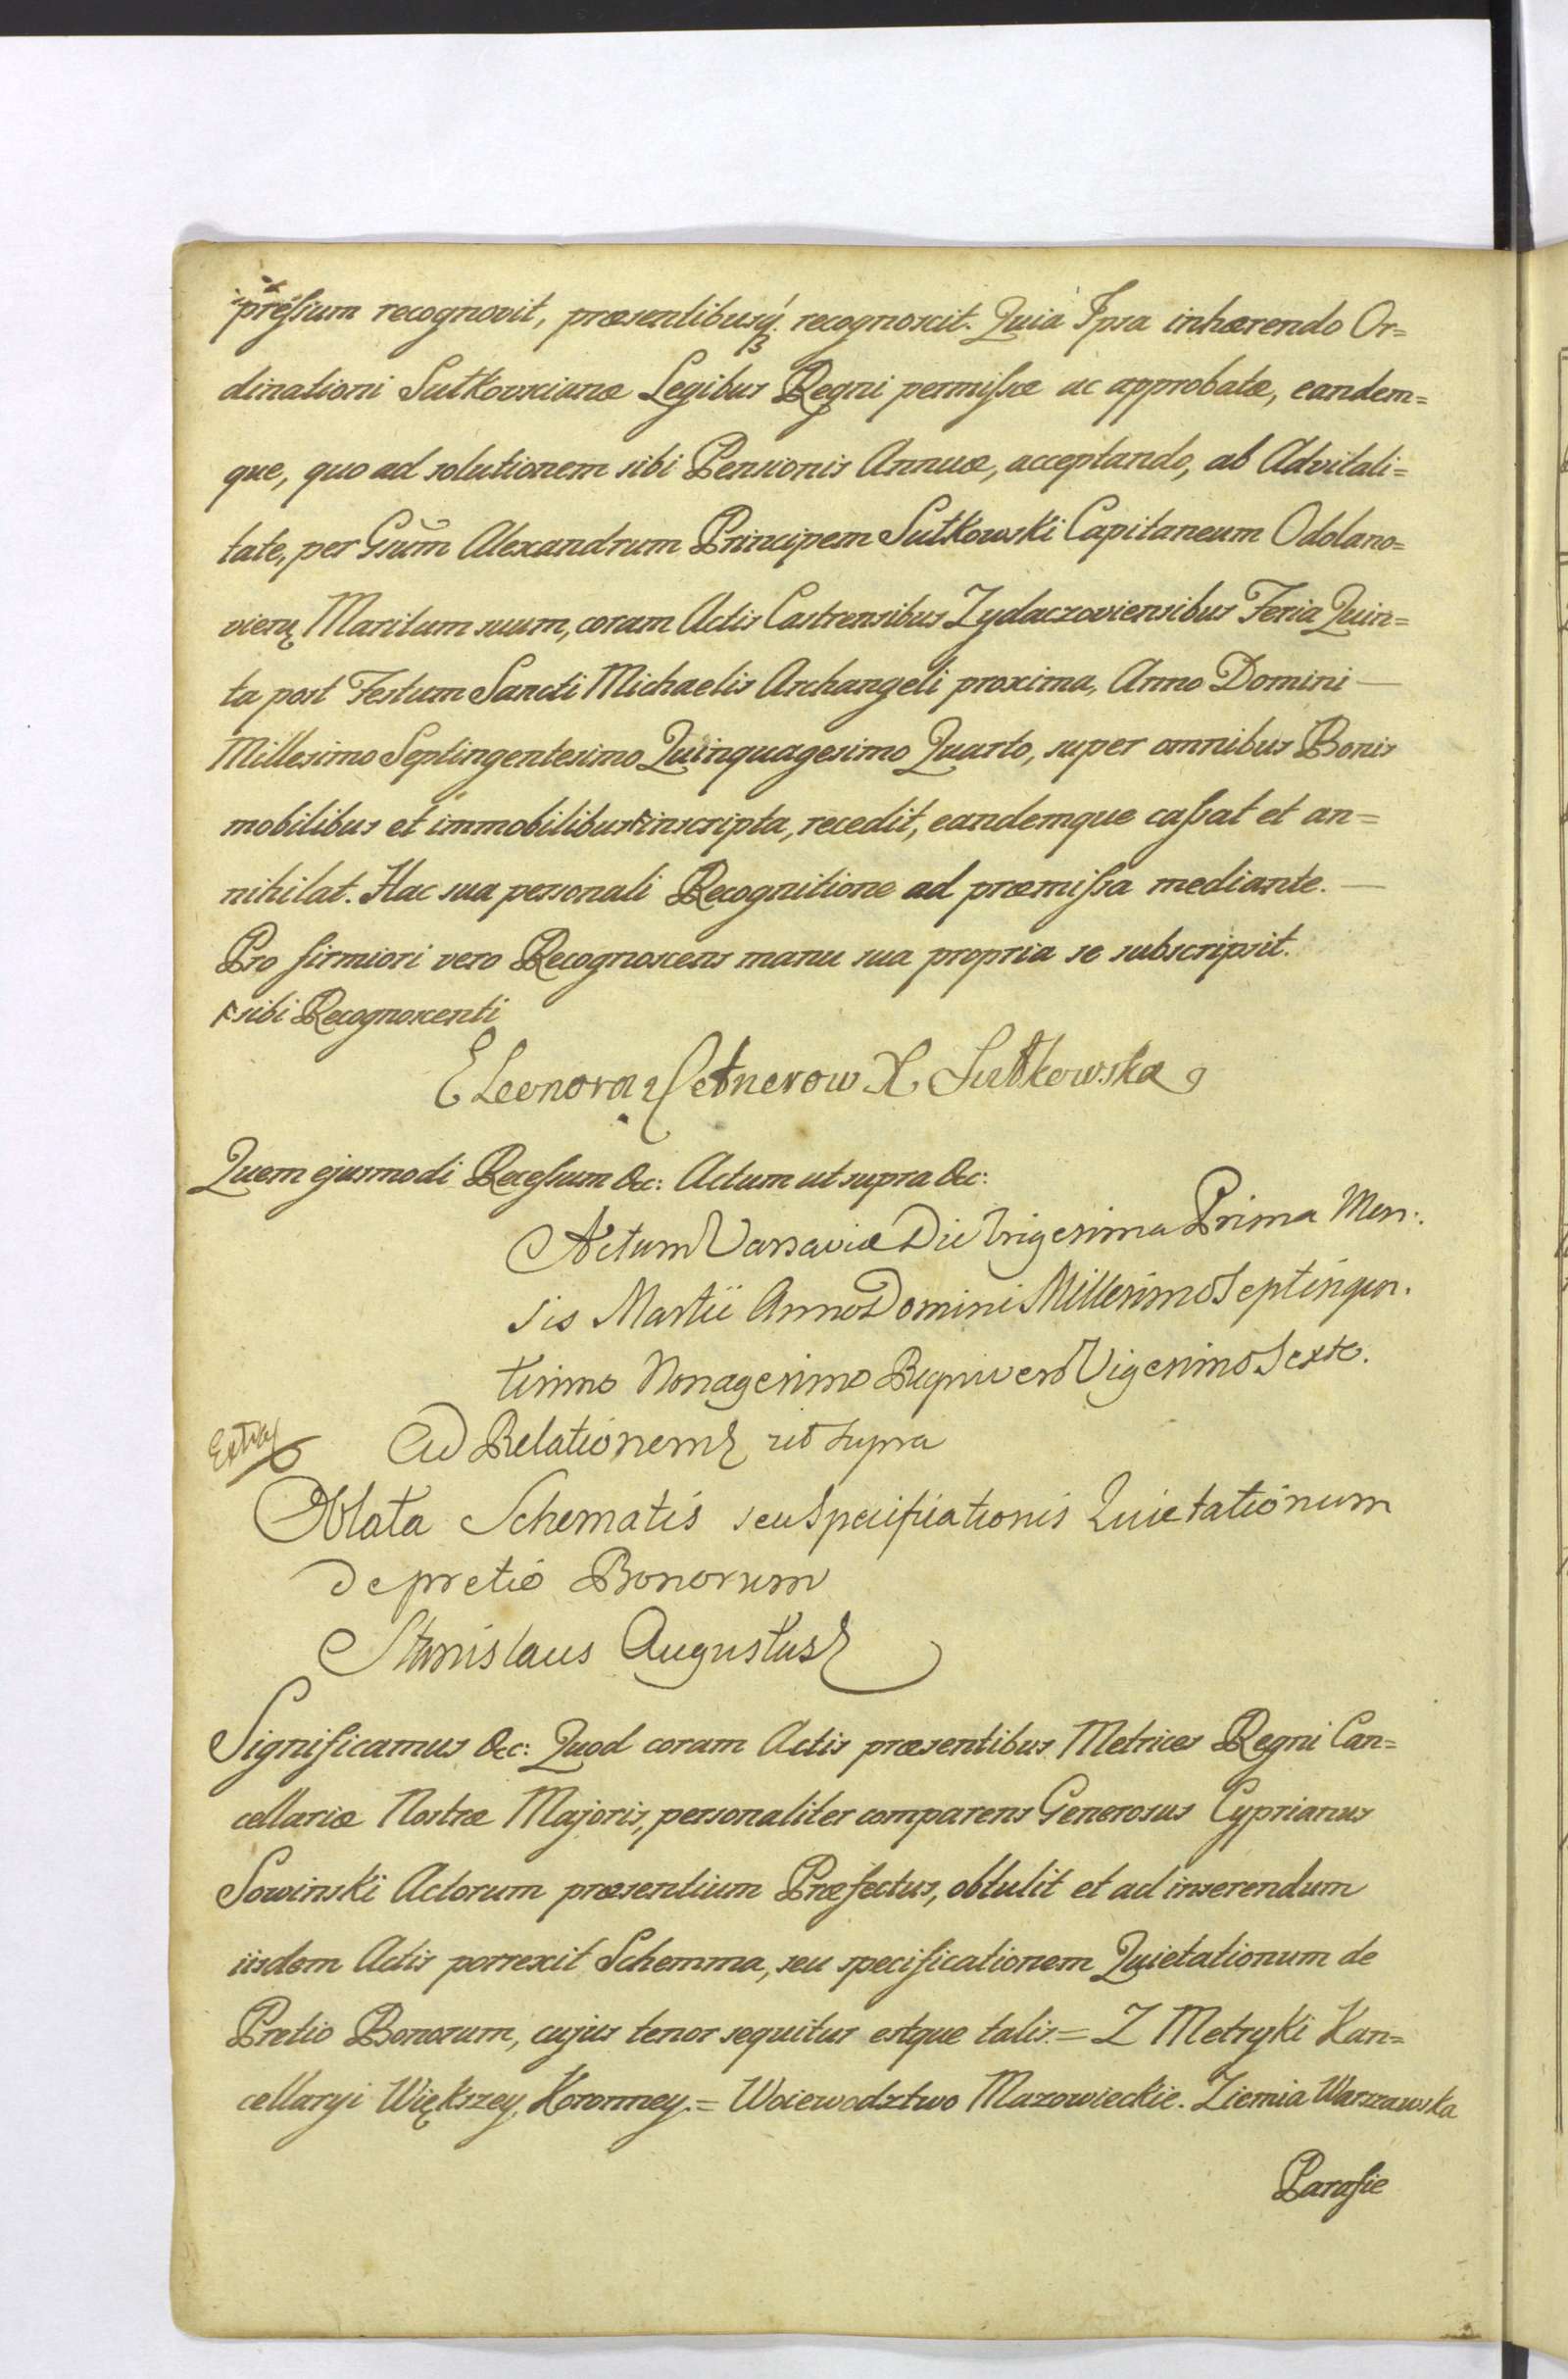 presſum recognovit, præsentibusq́ꝫ recognoscit. Quia Ipsa inhærendo Or=
dinationi Sułkovscianæ Legibus Regni permiſsæ ac approbatæ, eandem=
que, quo ad solutionem sibi Pensionis Annuæ, acceptando, ab Advitali=
tate, per Gnum Alexandrum Principem Sułkowski Capitaneum Odolano=
vien, Maritum suum, coram Actis Castrensibus Zydaczoviensibus Feria Quin=
ta post Festum Sancti Michaelis Archangeli proxima, Anno Domini —
Millesimo Septingentesimo Quinquagesimo Quarto, super omnibus Bonis
mobilibus et immobilibus inscripta, recedit, eandemque caſsat et an=
nihilat. Hac sua personali Recognitione ad præmiſsa mediante. —
Pro firmiori vero Recognoscens manu sua propria se subscripsit.
sibi Recognoscenti
ELeonora z Cetnerow X Sułkowska
Quem ejusmodi Receſsum &c: Actum ut supra &c:
Actum Varsaviæ Die Trigesima Prima Men:
sis Martii Anno Domini Millesimo Septingen.
tesimo Nonagesimo Regni vero Vigesimo Sexto.
Ad Relationem ut supra
Oblata Schematis seu Specifiationis Quietationum
de pretio Bonorum
Stanislaus Augustus
Significamus &c: Quod coram Actis præsentibus Metrices Regni Can=
cellariæ Nostræ Majoris, personaliter comparens Generosus Cyprianus
Sowinski Actorum præsentium Præfectus, obtulit et ad inserendum
iisdem Actis porrexit Schemma, seu specificationem Quietationum de
Pretio Bonorum, cujus tenor sequitur estque talis. = Z Metryki Kan=
cellaryi Większey Koronney. = Woiewodztwo Mazowieckie. Ziemia Warszawska
Parafie